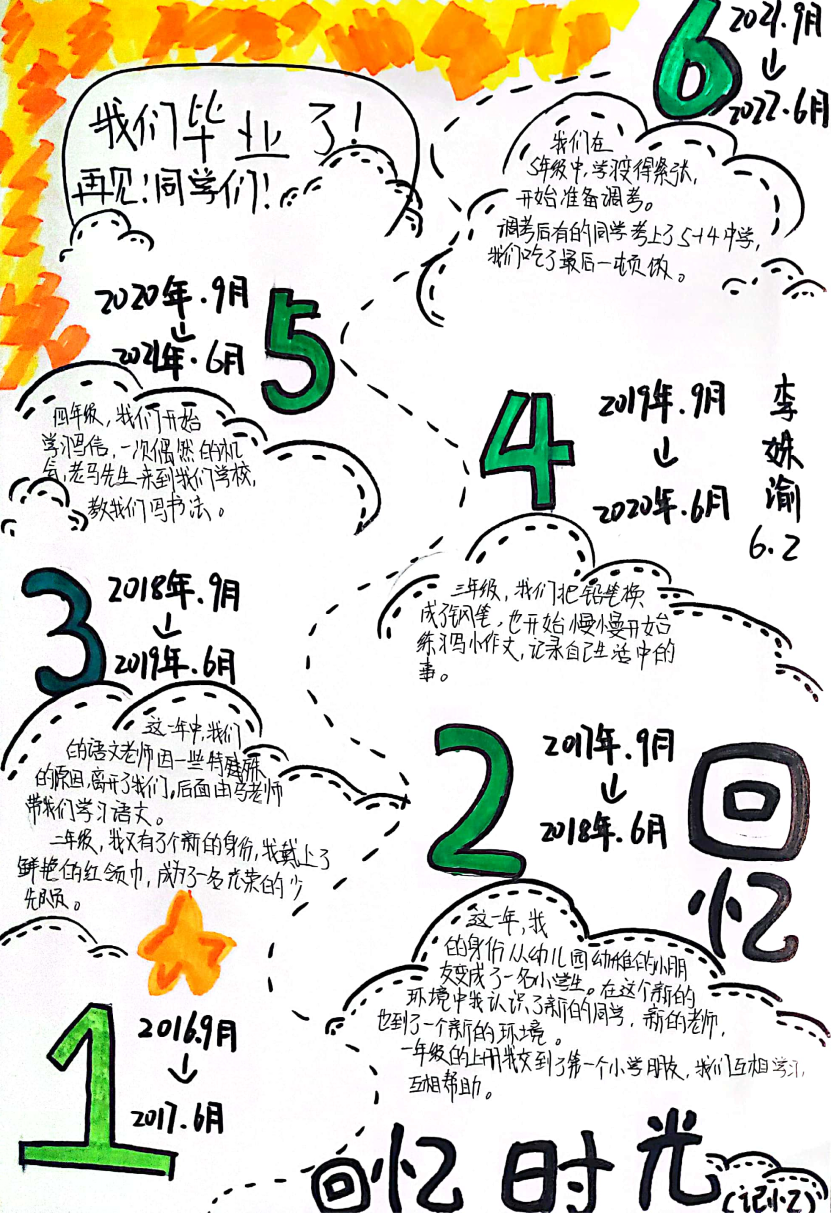 我们毕业了！
再见！同学们！
6
2021.9月
↓
2022.6月
我们在
5年级中，学习变得紧张，
开始准备调考。
调考后有的同学考上了5+4中学，
我们吃了最后一顿饭。
5
2020年.9月
↓
2021年.6月
四年级，我们开始
学习写信，一次偶然的机
会，老马先生来到我们学校，
教我们写书法。
4
2019年.9月
↓
2020年.6月
李姝渝
6.2
三年级，我们把铅笔换
成了钢笔，也开始慢慢开始
练习写小作文，记录自己生活中的
事。
3
2018年.9月
↓
2019年.6月
这一年中，我们
的语文老师因一些特殊
的原因，离开了我们，后面由马老师
带我们学习语文。
二年级，我又有了个新的身份，我戴上了
鲜艳的红领巾，成为了一名光荣的少
先队员。
2
2017年.9月
↓
2018年.6月
回忆
这一年，我
的身份从幼儿园幼稚的小朋
友变成了一名小学生。在这个新的
环境中我认识了新的同学，新的老师，
也到了一个新的环境。
一年级的上册我交到了第一个小学朋友，我们互相学习，
互相帮助。
1
2016.9月
↓
2017.6月
回忆时光
(记忆)